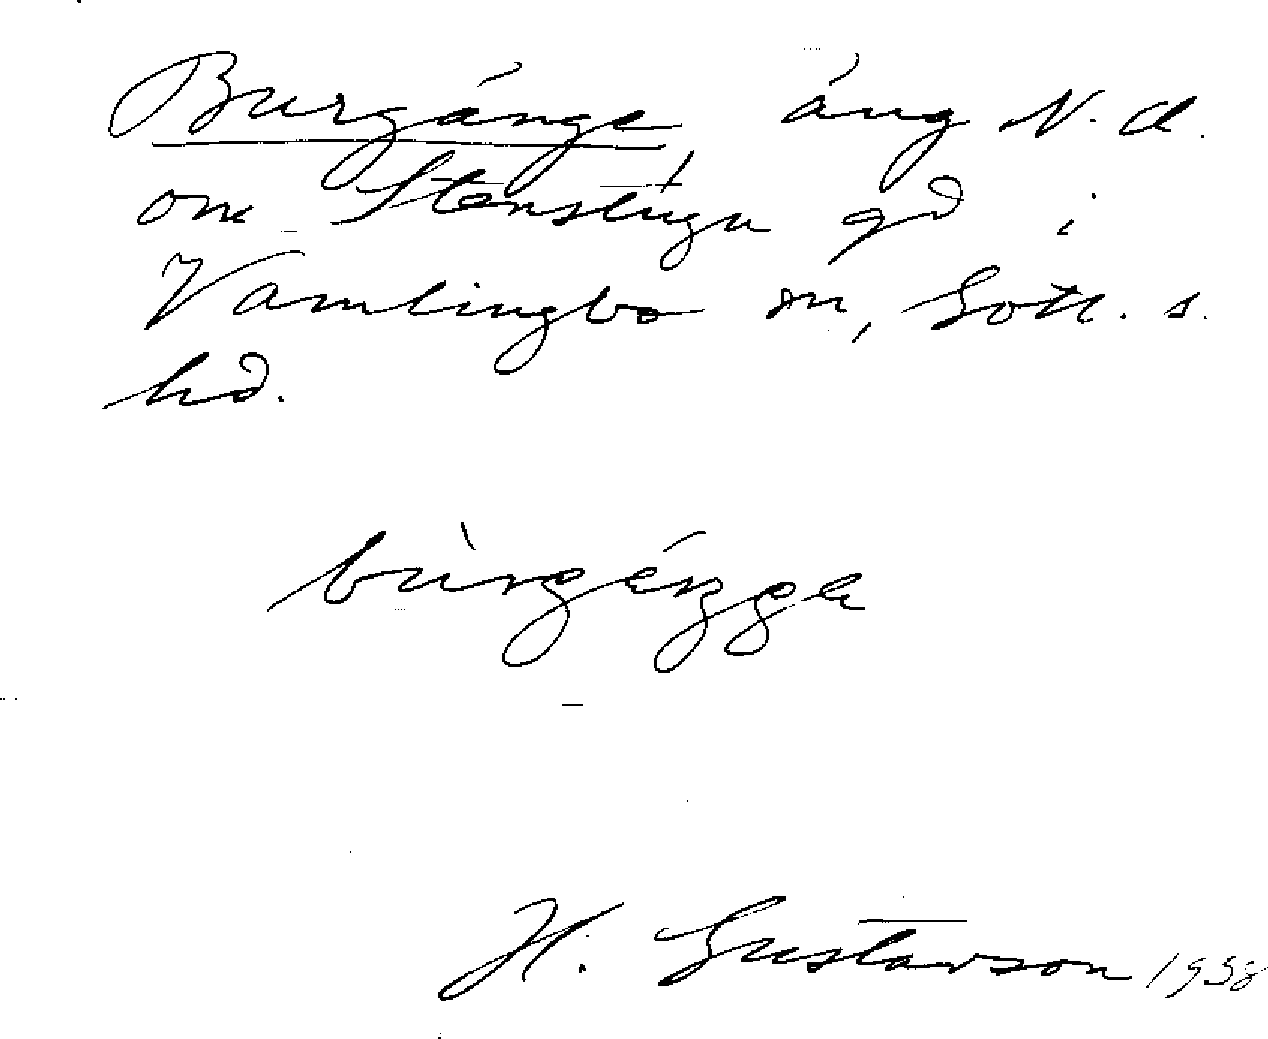 Burgänge, äng N. d.
om Stenstugu gd i
Vamlingbo sn, Gotl. s.
hd.
bùrgéŋge
H. Gustavson 1938